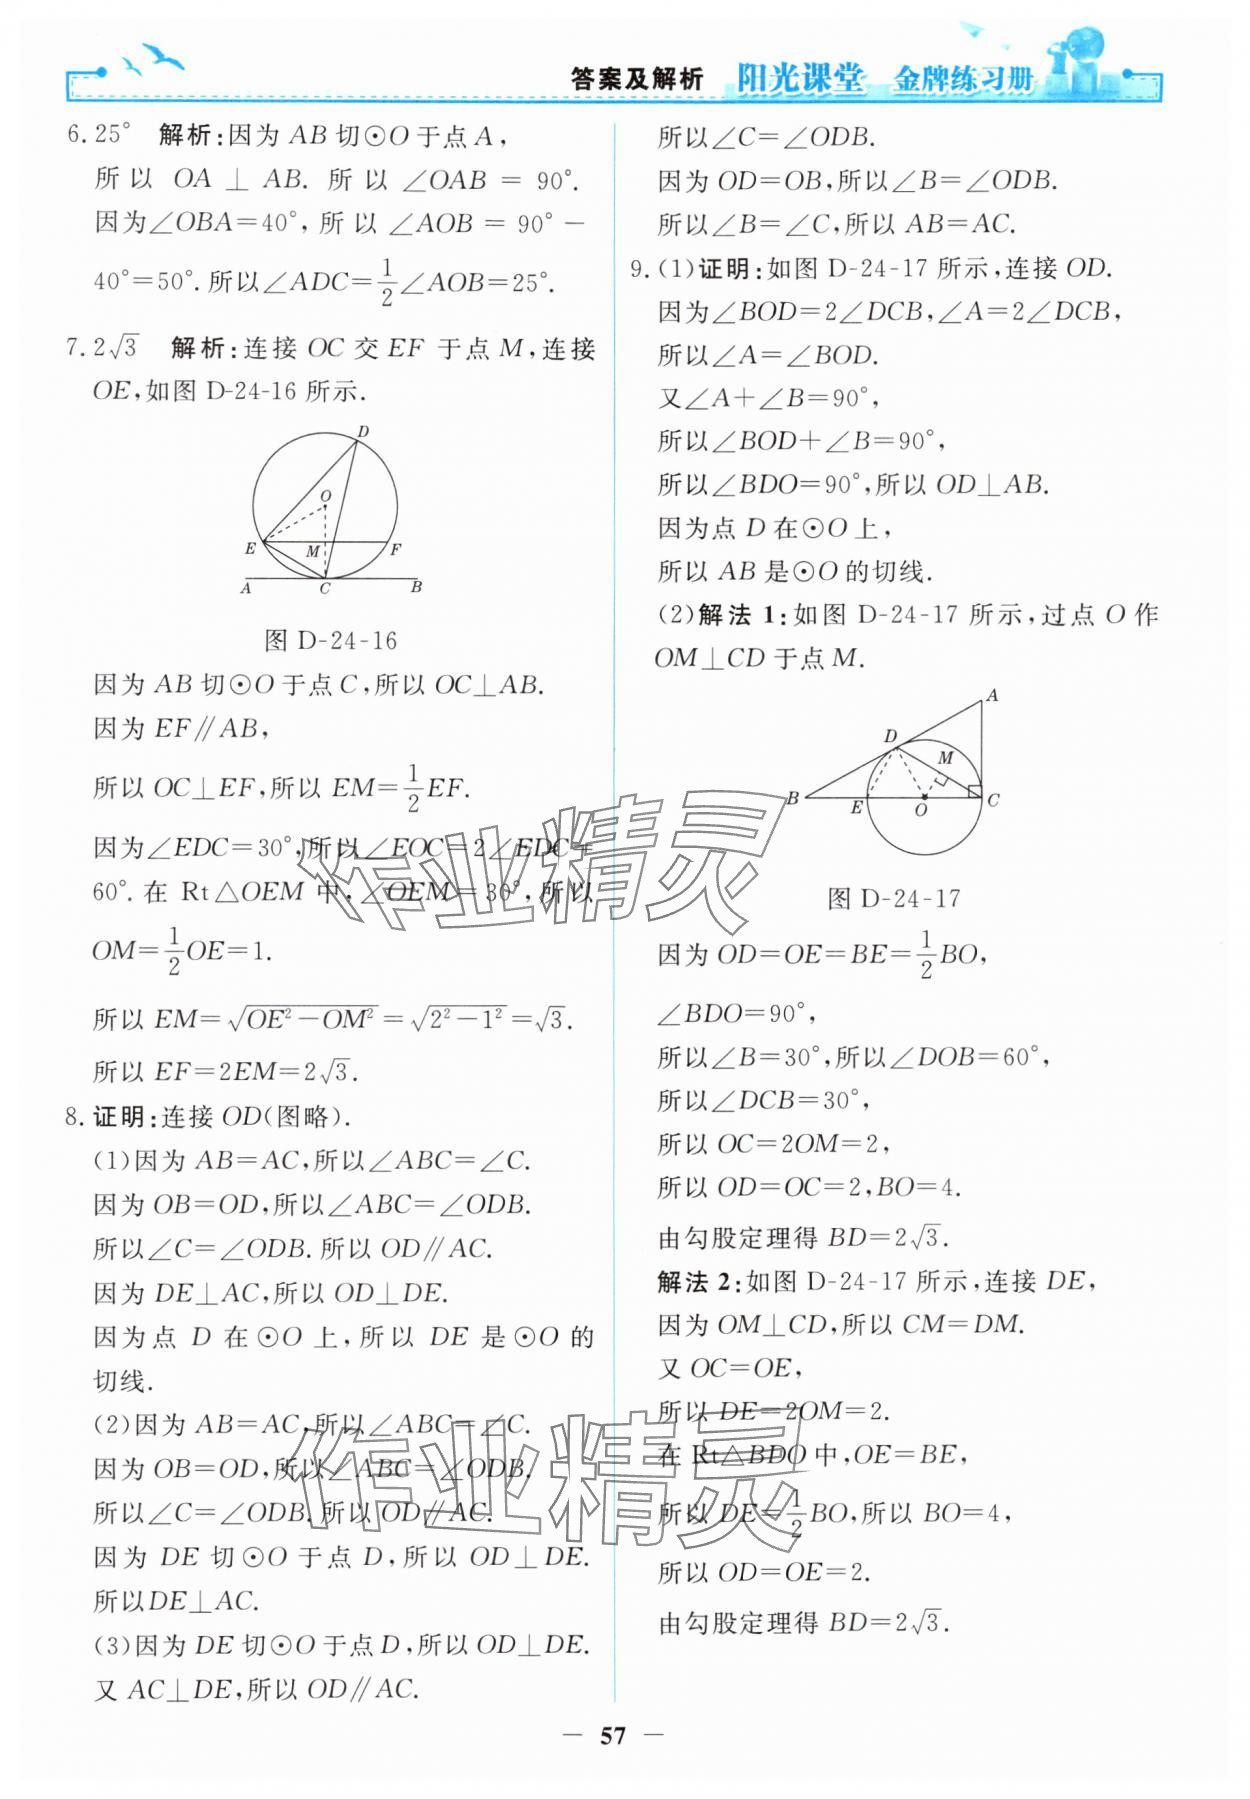 答案及解析 阳光课堂 金牌练习册
6. 25° 解析:因为 AB 切⊙O 于点 A,
所以 OA⊥AB. 所以∠OAB=90°.
因为∠OBA=40°,所以∠AOB=90°−
40°=50°.所以∠ADC=1/2∠AOB=25°.
7. 2√3 解析:连接 OC 交 EF 于点 M,连接
OE,如图 D-24-16 所示.
D
O
E M F
A C B
图 D-24-16
因为 AB 切⊙O 于点 C,所以 OC⊥AB.
因为 EF∥AB,
所以 OC⊥EF,所以 EM=1/2EF.
因为∠EDC=30°,所以∠EOC=2∠EDC=
60°.在 Rt△OEM 中,∠OEM=30°,所以
OM=1/2OE=1.
所以 EM=√(OE²−OM²)=√(2²−1²)=√3.
所以 EF=2EM=2√3.
8. 证明:连接 OD(图略).
(1)因为 AB=AC,所以∠ABC=∠C.
因为 OB=OD,所以∠ABC=∠ODB.
所以∠C=∠ODB.所以 OD∥AC.
因为 DE⊥AC,所以 OD⊥DE.
因为点 D 在⊙O 上,所以 DE 是⊙O 的
切线.
(2)因为 AB=AC,所以∠ABC=∠C.
因为 OB=OD,所以∠ABC=∠ODB.
所以∠C=∠ODB.所以 OD∥AC.
因为 DE 切⊙O 于点 D,所以 OD⊥DE.
所以DE⊥AC.
(3)因为 DE 切⊙O 于点 D,所以 OD⊥DE.
又 AC⊥DE,所以 OD∥AC.
所以∠C=∠ODB.
因为 OD=OB,所以∠B=∠ODB.
所以∠B=∠C,所以 AB=AC.
9. (1)证明:如图 D-24-17 所示,连接 OD.
因为∠BOD=2∠DCB,∠A=2∠DCB,
所以∠A=∠BOD.
又∠A+∠B=90°,
所以∠BOD+∠B=90°,
所以∠BDO=90°,所以 OD⊥AB.
因为点 D 在⊙O 上,
所以 AB 是⊙O 的切线.
(2)解法 1:如图 D-24-17 所示,过点 O 作
OM⊥CD 于点 M.
A
D
M
B E O C
图 D-24-17
因为 OD=OE=BE=1/2BO,
∠BDO=90°,
所以∠B=30°,所以∠DOB=60°,
所以∠DCB=30°,
所以 OC=2OM=2,
所以 OD=OC=2,BO=4.
由勾股定理得 BD=2√3.
解法 2:如图 D-24-17 所示,连接 DE,
因为 OM⊥CD,所以 CM=DM.
又 OC=OE,
所以 DE=2OM=2.
在 Rt△BDO 中,OE=BE,
所以 DE=1/2BO,所以 BO=4,
所以 OD=OE=2.
由勾股定理得 BD=2√3.
作业精灵
作业精灵
— 57 —